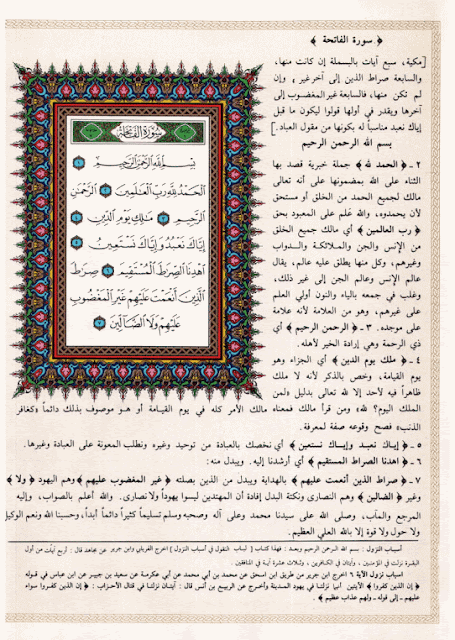 ﴿ سورة الفاتحة ﴾
[مكية، سبع آيات بالبسملة إن كانت منها،
والسابعة صراط الذين إلى آخر غير، وإن
لم تكن منها، فالسابعة غير المغضوب إلى
آخرها ويقدر في أولها قولوا ليكون ما قبل
إياك نعبد مناسباً له بكونها من مقول العباد.]
بسم الله الرحمن الرحيم
٢ - ﴿ الحمد لله ﴾ جملة خبرية قصد بها
الثناء على الله بمضمونها على أنه تعالى
مالك لجميع الحمد من الخلق أو مستحق
لأن يحمدوه، والله عَلم على المعبود بحق
﴿ رب العالمين ﴾ أي مالك جميع الخلق
من الإنس والجن والملائكة والدواب
وغيرهم، وكل منها يطلق عليه عالم، يقال
عالم الإنس وعالم الجن إلى غير ذلك،
وغلب في جمعه بالياء والنون أولي العلم
على غيرهم، وهو من العلامة لأنه علامة
على موجده. ٣ - ﴿ الرحمن الرحيم ﴾ أي
ذي الرحمة وهي إرادة الخير لأهله.
٤ - ﴿ ملك يوم الدين ﴾ أي الجزاء وهو
يوم القيامة، وخص بالذكر لأنه لا ملك
ظاهراً فيه لأحد إلا لله تعالى بدليل «لمن
الملك اليوم؟ لله» ومن قرأ مالك فمعناه
مالك الأمر كله في يوم القيامة أو هو موصوف بذلك دائماً «كغافر
الذنب» فصح وقوعه صفة لمعرفة.
٥ - ﴿ إياك نعبد وإياك نستعين ﴾ أي نخصك بالعبادة من توحيد وغيره ونطلب المعونة على العبادة وغيرها.
٦ - ﴿ اهدنا الصراط المستقيم ﴾ أي أرشدنا إليه. ويبدل منه:
٧ - ﴿ صراط الذين أنعمت عليهم ﴾ بالهداية ويبدل من الذين بصلته ﴿ غير المغضوب عليهم ﴾ وهم اليهود ﴿ ولا ﴾
وغير ﴿ الضالين ﴾ وهم النصارى ونكتة البدل إفادة أن المهتدين ليسوا يهوداً ولا نصارى. والله أعلم بالصواب، وإليه
المرجع والمآب، وصلى الله على سيدنا محمد وعلى آله وصحبه وسلم تسليماً كثيراً دائماً أبداً، وحسبنا الله ونعم الوكيل
ولا حول ولا قوة إلا بالله العلي العظيم.
سُورَةُ الفَاتِحَةِ
بِسْمِ اللَّهِ الرَّحْمَٰنِ الرَّحِيمِ ١
الْحَمْدُ لِلَّهِ رَبِّ الْعَالَمِينَ ٢ الرَّحْمَٰنِ
الرَّحِيمِ ٣ مَالِكِ يَوْمِ الدِّينِ ٤
إِيَّاكَ نَعْبُدُ وَإِيَّاكَ نَسْتَعِينُ ٥
اهْدِنَا الصِّرَاطَ الْمُسْتَقِيمَ ٦ صِرَاطَ
الَّذِينَ أَنْعَمْتَ عَلَيْهِمْ غَيْرِ الْمَغْضُوبِ
عَلَيْهِمْ وَلَا الضَّالِّينَ ٧
أسباب النزول : بسم الله الرحمن الرحيم وبعد : فهذا كتاب [ لباب النقول في أسباب النزول ] أخرج الفريابي وابن جرير عن مجاهد قال : أربع آيات من أول
البقرة نزلت في المؤمنين ، وآيتان في الكافرين ، وثلاث عشرة آية في المنافقين .
اسباب نزول الآية ٦ أخرج ابن جرير من طريق ابن اسحق عن محمد بن أبي محمد عن أبي عكرمة عن سعيد بن جبير عن ابن عباس في قوله
﴿ إن الذين كفروا ﴾ الآيتين أنها نزلتا في يهود المدينة وأخرج عن الربيع بن أنس قال : آيتان نزلتا في قتال الأحزاب : ﴿ إن الذين كفروا سواء
عليهم ـ إلى قوله ـ ولهم عذاب عظيم ﴾ .